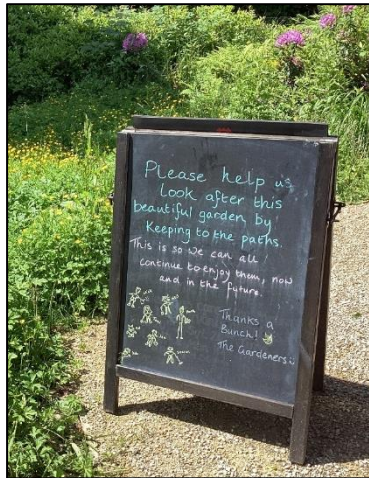 Please help us
look after this
beautiful garden, by
Keeping to the paths.
This is so we can all
continue to enjoy them, now
and in the future.
Thanks a
Bunch!
The Gardeners